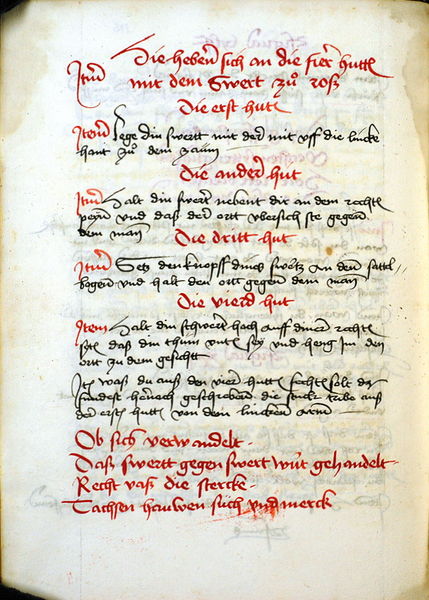 Die hebenn sich an die fier hutten
Item mit dem Swert zuͦ roß
Die erst hutt
Item Lege din swertt mit der mit vff die lincke
hant zuͦ dem zaum
Die ander hut
Item Halt din swert nebent dir an dem rechten
vnd das der ortt vbersich ste gegen
dem man
Die dritt hut
Item Setz den knopff dines swertz an denn sattel
bogenn vnd halt den ortt gegen dem man
Die vierd hut
Item Halt din schwert hoch auff diner rechten
syten daß din thum vnten sey vnd heng im den
ortt zu dem gesicht
Item waß du auß den vier hutten fechten solt das
findest hernoch geschribenn die stuck auß
der ersten hutten von dem lincken arm
Ob sich verwandelt
Daß swertt gegen swert wurt gehandelt
Recht vaß die stercke
Tachsen hauwen such vnd merck